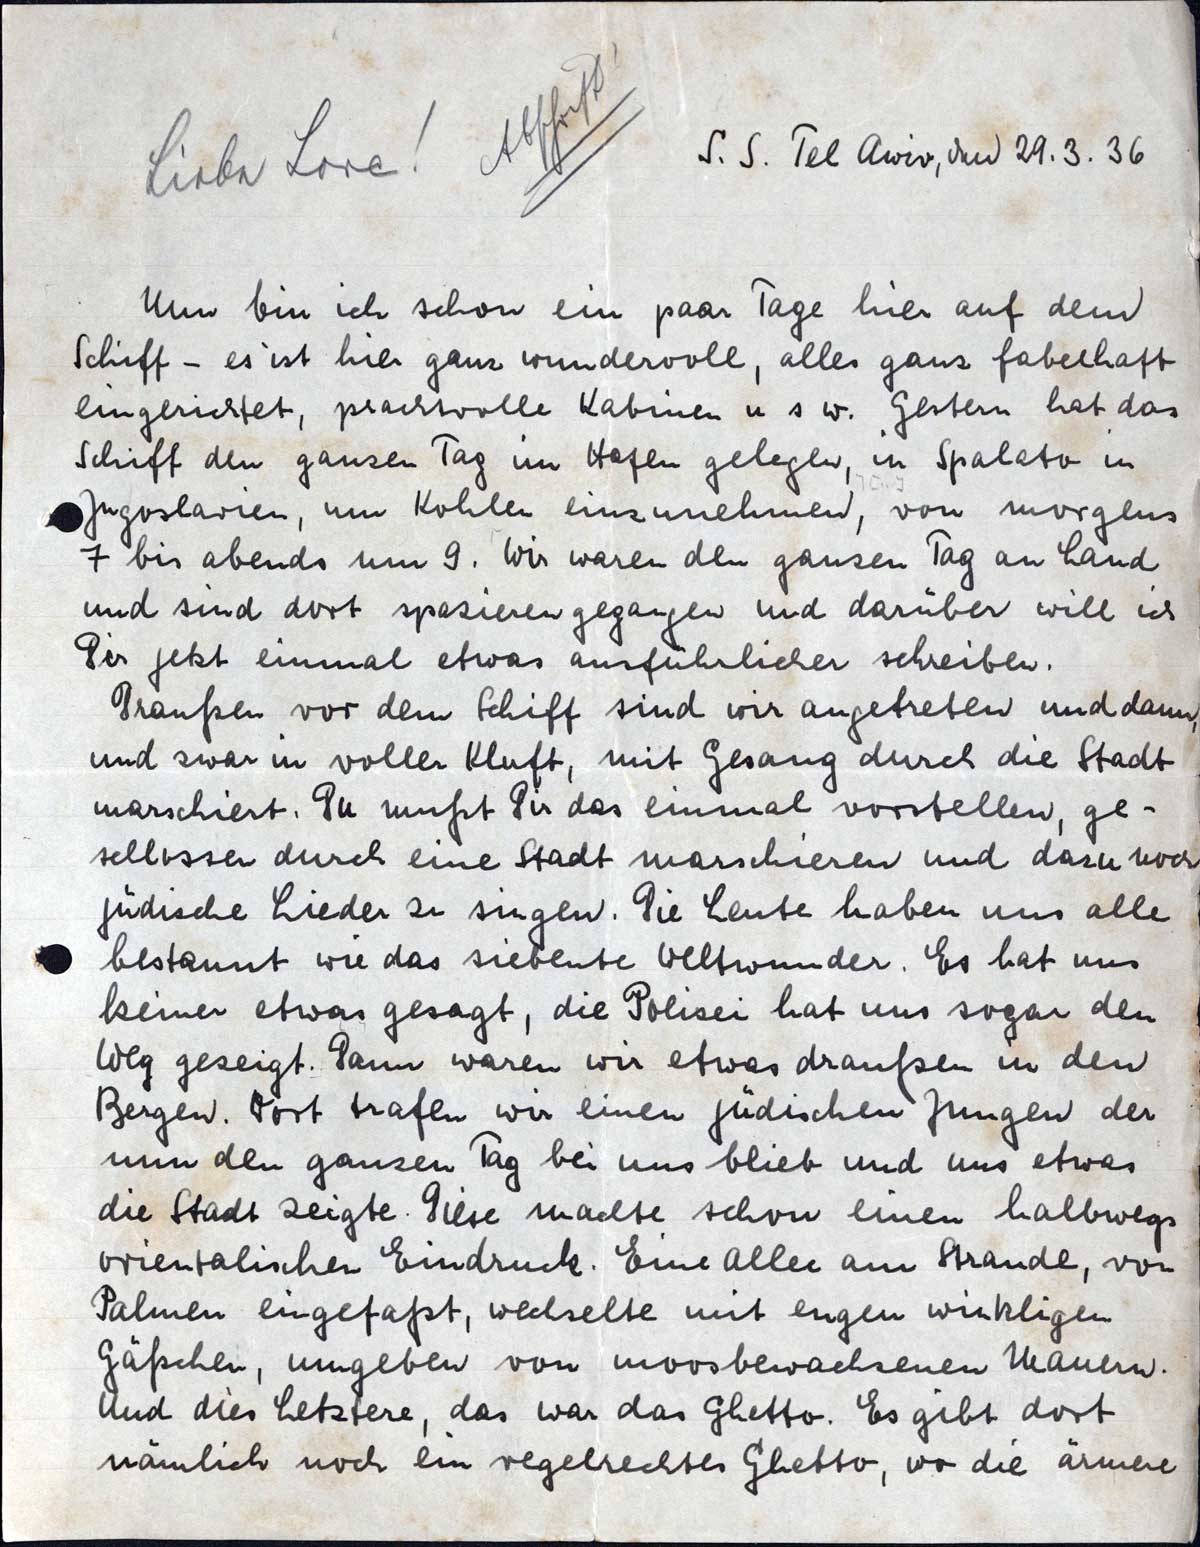 Liebe Lore!
Abschrift!
S. S. Tel Awiv, den 29. 3. 36
Nun bin ich schon ein paar Tage hier auf dem
Schiff – es ist hier ganz wundervoll, alles ganz fabelhaft
eingerichtet, prachtvolle Kabinen u s w. Gestern hat das
Schiff den ganzen Tag im Hafen gelegen, in Spalato in
Jugoslavien, um Kohlen einzunehmen, von morgens
7 bis abends um 9. Wir waren den ganzen Tag an Land
und sind dort spazierengegangen und darüber will ich
Dir jetzt einmal etwas ausführlicher schreiben.
Draußen vor dem Schiff sind wir angetreten und dann,
und zwar in voller Kluft, mit Gesang durch die Stadt
marschiert. Du mußt Dir das einmal vorstellen, ge-
schlossen durch eine Stadt marschieren und dazu noch
jüdische Lieder zu singen. Die Leute haben uns alle
bestaunt wie das siebente Weltwunder. Es hat uns
keiner etwas gesagt, die Polizei hat uns sogar den
Weg gezeigt. Dann waren wir etwas draußen in den
Bergen. Dort trafen wir einen jüdischen Jungen der
nun den ganzen Tag bei uns blieb und uns etwas
die Stadt zeigte. Diese machte schon einen halbwegs
orientalischen Eindruck. Eine Allee am Strande, von
Palmen eingefaßt, wechselte mit engen winkligen
Gäßchen, umgeben von moosbewachsenen Mauern.
Und dies Letztere, das war das Ghetto. Es gibt dort
nämlich noch ein regelrechtes Ghetto, wo die ärmere